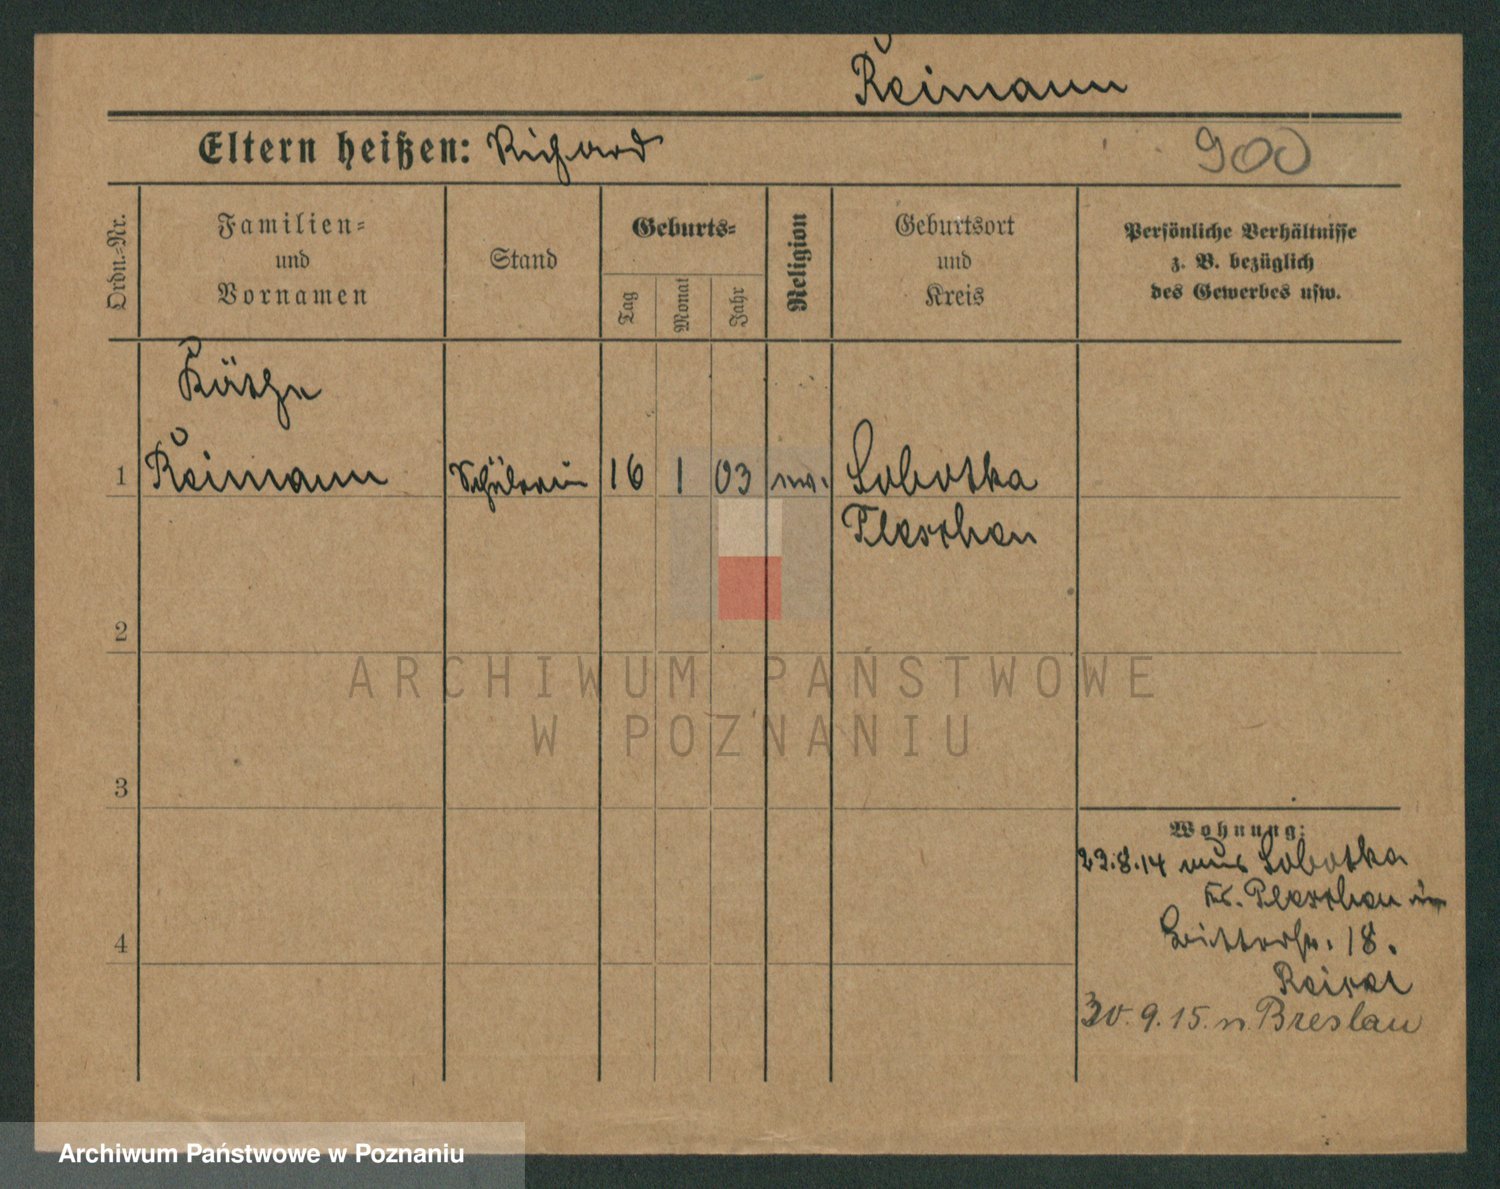 Reimann
Eltern heißen: Richard
900
Ordn.-Nr.
Familien-
und
Vornamen
Stand
Geburts-
Tag
Monat
Jahr
Religion
Geburtsort
und
Kreis
Persönliche Verhältnisse
z. B. bezüglich
des Gewerbes usw.
Käthe
1 Reimann Schülerin 16 1 03 Sobotka
Pleschen
2
ARCHIWUM PAŃSTWOWE
W POZNANIU
3
Wohnung:
22.8.14 aus Sobotka
Kr. Pleschen in
18.
4
30.9.15. n Breslau
Archiwum Państwowe w Poznaniu